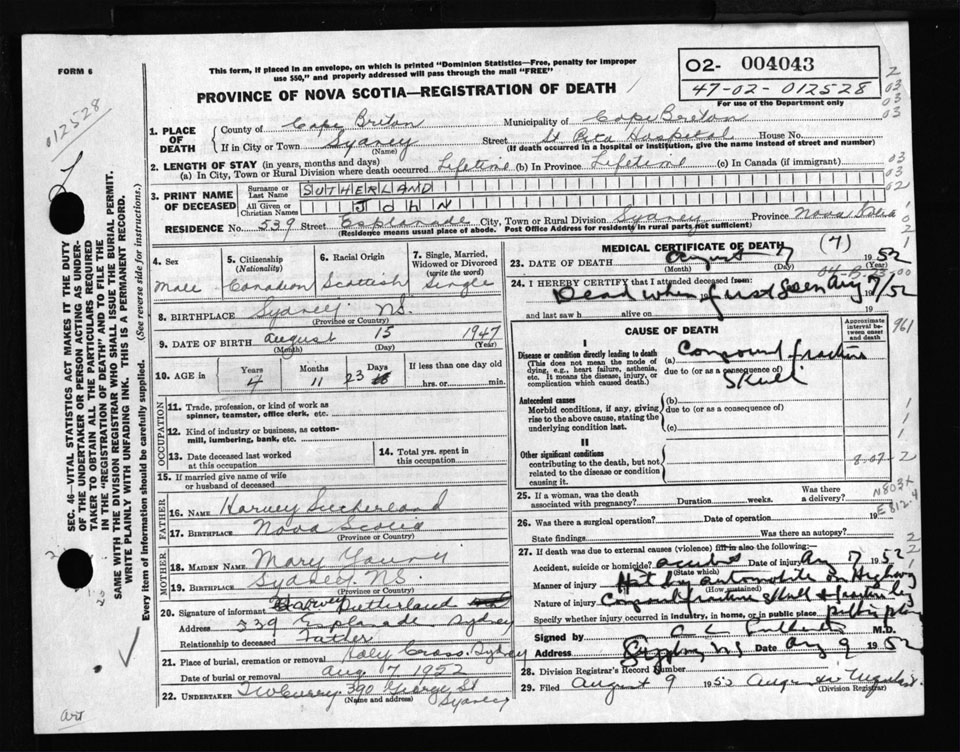 FORM 6
This form, if placed in an envelope, on which is printed "Dominion Statistics—Free, penalty for improper
use $50," and properly addressed will pass through the mail "FREE"
PROVINCE OF NOVA SCOTIA—REGISTRATION OF DEATH
O2- 004043
47-02-012528
For use of the Department only
012528
1. PLACE OF DEATH
County of Cape Breton Municipality of Cape Breton
If in City or Town Sydney Street St Rita Hospital House No.
(Name) (If death occurred in a hospital or institution, give its name instead of street and number)
2. LENGTH OF STAY (in years, months and days)
(a) In City, Town or Rural Division where death occurred Lifetime (b) In Province Lifetime (c) In Canada (if immigrant)
3. PRINT NAME OF DECEASED
Surname or Last Name SUTHERLAND
All Given or Christian Names John
RESIDENCE No. 539 Street Esplanade City, Town or Rural Division Sydney Province Nova Scotia
(Residence means usual place of abode. Post Office Address for residents in rural parts not sufficient)
4. Sex Male
5. Citizenship (Nationality) Canadian
6. Racial Origin Scottish
7. Single, Married, Widowed or Divorced (write the word) Single
8. BIRTHPLACE Sydney NS.
(Province or Country)
9. DATE OF BIRTH August 15 1947
(Month) (Day) (Year)
10. AGE in Years 4 Months 11 Days 23 If less than one day old
hrs. or min.
OCCUPATION
11. Trade, profession, or kind of work as spinner, teamster, office clerk, etc.
12. Kind of industry or business, as cotton-mill, lumbering, bank, etc.
13. Date deceased last worked at this occupation
14. Total yrs. spent in this occupation
15. If married give name of wife or husband of deceased
FATHER
16. NAME Harvey Sutherland
17. BIRTHPLACE Nova Scotia
(Province or Country)
MOTHER
18. MAIDEN NAME Mary Young
19. BIRTHPLACE Sydney NS
(Province or Country)
20. Signature of informant Harvey Sutherland
Address 339 Esplanade Sydney
Relationship to deceased Father
21. Place of burial, cremation or removal Holy Cross. Sydney
Date of burial or removal Aug 7, 1952
22. UNDERTAKER T W Curry 390 George St
(Name and address) Sydney
MEDICAL CERTIFICATE OF DEATH (7)
23. DATE OF DEATH August 7 1952
(Month) (Day) (Year)
24. I HEREBY CERTIFY that I attended deceased from:
Dead when first seen Aug 7/52
and last saw h alive on 19
CAUSE OF DEATH
Approximate interval between onset and death
I
Disease or condition directly leading to death
(This does not mean the mode of dying, e.g., heart failure, asthenia, etc. It means the disease, injury, or complication which caused death.)
(a) Compound fracture
due to (or as a consequence of)
Skull
Antecedent causes
Morbid conditions, if any, giving rise to the above cause, stating the underlying condition last.
(b)
due to (or as a consequence of)
(c)
II
Other significant conditions
contributing to the death, but not related to the disease or condition causing it.
961
8-07-2
N803+
E812.4
25. If a woman, was the death associated with pregnancy? Duration weeks. Was there a delivery?
26. Was there a surgical operation? Date of operation 19
State findings Was there an autopsy?
27. If death was due to external causes (violence) fill in also the following:
Accident, suicide or homicide? Date of injury Aug 7 1952
(State which)
Manner of injury Hit by automobile on Highway
(How sustained)
Nature of injury Compound fracture Skull & fracture leg
Specify whether injury occurred in industry, in home, or in public place public place
Signed by M.D.
Address NS Date Aug 9 1952
28. Division Registrar's Record Number
29. Filed August 9 1952
(Division Registrar)
SEC. 46—VITAL STATISTICS ACT MAKES IT THE DUTY
OF THE UNDERTAKER OR PERSON ACTING AS UNDER-
TAKER TO OBTAIN ALL THE PARTICULARS REQUIRED
IN THE "REGISTRATION OF DEATH" AND TO FILE THE
SAME WITH THE DIVISION REGISTRAR WHO SHALL ISSUE THE BURIAL PERMIT.
WRITE PLAINLY WITH UNFADING INK. THIS IS A PERMANENT RECORD.
Every item of information should be carefully supplied. (See reverse side for instructions.)